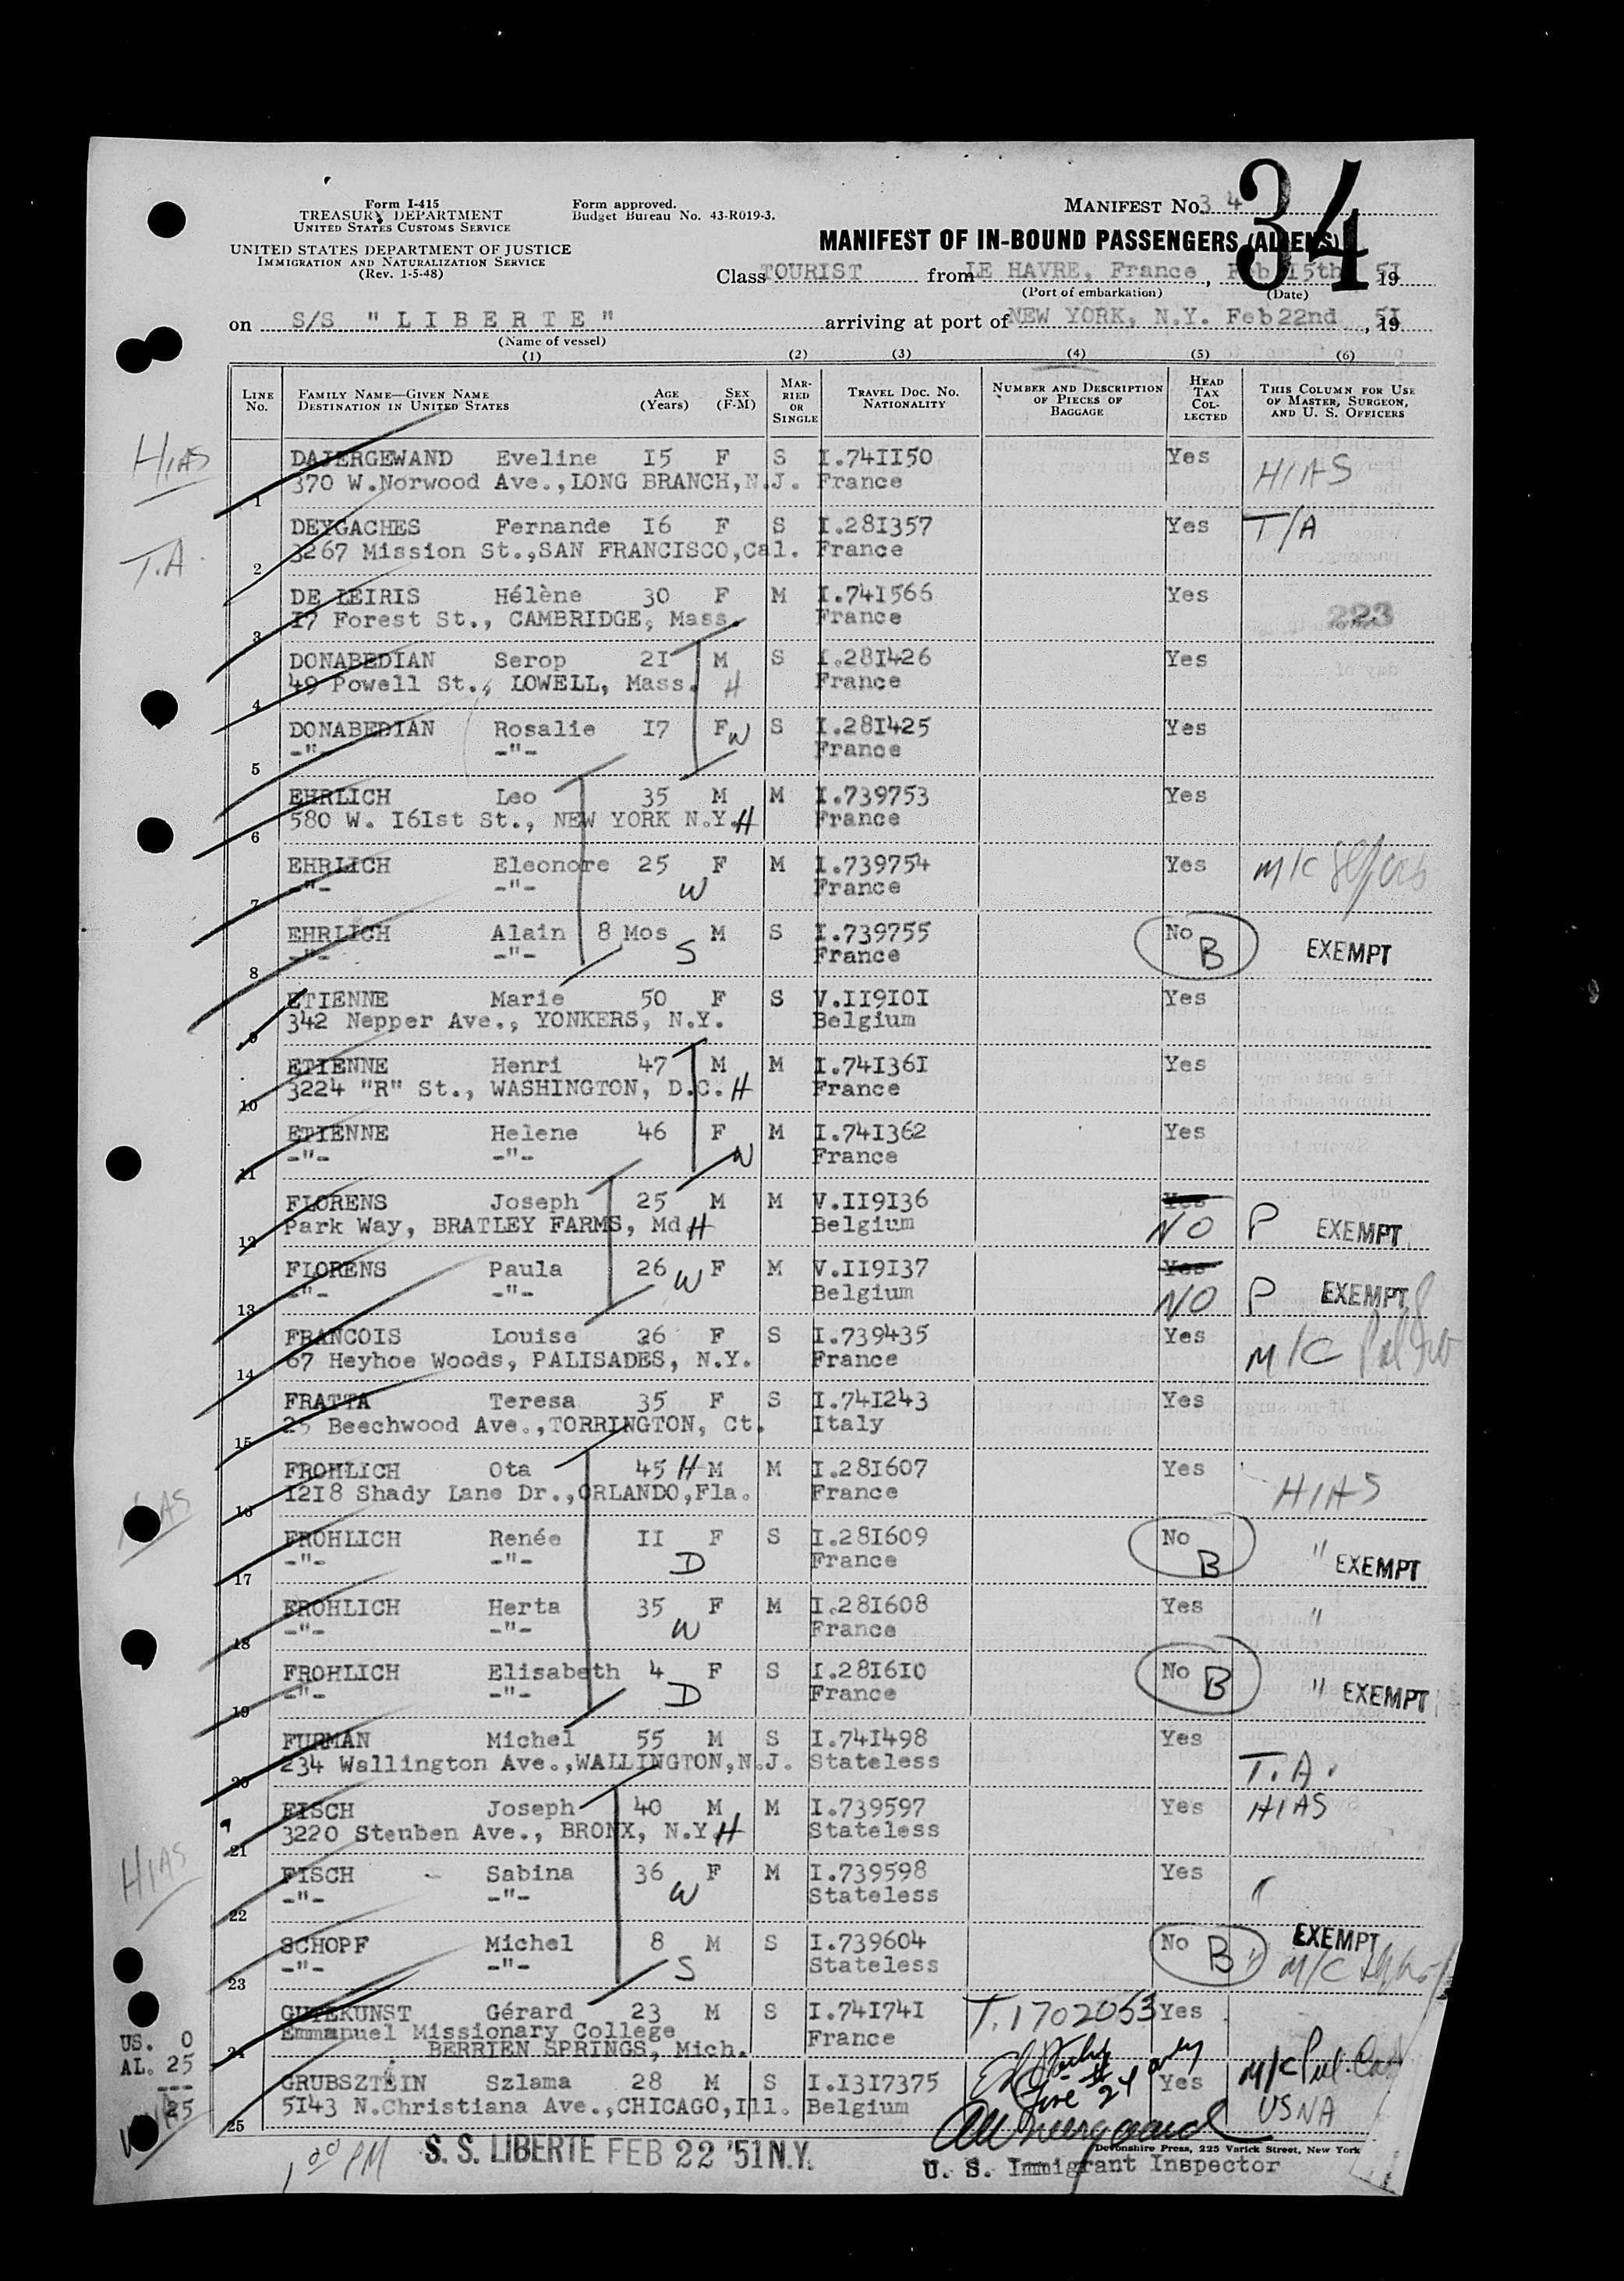 34
Form I-415
TREASURY DEPARTMENT
UNITED STATES CUSTOMS SERVICE
Form approved.
Budget Bureau No. 43-R019-3.
MANIFEST No. 34
UNITED STATES DEPARTMENT OF JUSTICE
IMMIGRATION AND NATURALIZATION SERVICE
(Rev. 1-5-48)
MANIFEST OF IN-BOUND PASSENGERS (ALIENS)
Class TOURIST from LE HAVRE, France, Feb 15th 19 51
(Port of embarkation) (Date)
on S/S "LIBERTE" arriving at port of NEW YORK, N.Y. Feb 22nd, 19 51
(Name of vessel)
(1) (2) (3) (4) (5) (6)
LINE No. FAMILY NAME—GIVEN NAME DESTINATION IN UNITED STATES AGE (Years) SEX (F-M) MARRIED OR SINGLE TRAVEL DOC. No. NATIONALITY NUMBER AND DESCRIPTION OF PIECES OF BAGGAGE HEAD TAX COLLECTED THIS COLUMN FOR USE OF MASTER, SURGEON, AND U. S. OFFICERS
HIAS
DAJERGEWAND Eveline I5 F S I.74II50 Yes HIAS
1 370 W.Norwood Ave.,LONG BRANCH,N.J. France
DEYGACHES Fernande I6 F S I.28I357 Yes T/A
T.A.
2 3267 Mission St.,SAN FRANCISCO,Cal. France
DE LEIRIS Hélène 30 F M I.74I566 Yes
3 I7 Forest St., CAMBRIDGE, Mass. France 223
DONABEDIAN Serop 2I M S I.28I426 Yes
4 49 Powell St., LOWELL, Mass. H France
DONABEDIAN Rosalie I7 F W S I.28I425 Yes
5 -"- -"- France
EHRLICH Leo 35 M M I.739753 Yes
6 580 W. I6Ist St., NEW YORK N.Y. H France
EHRLICH Eleonore 25 F M I.739754 Yes M/C
7 -"- -"- W France
EHRLICH Alain 8 Mos M S I.739755 No B EXEMPT
8 -"- -"- S France
ETIENNE Marie 50 F S V.II9I0I Yes
9 342 Nepper Ave., YONKERS, N.Y. Belgium
ETIENNE Henri 47 M M I.74I36I Yes
10 3224 "R" St., WASHINGTON, D.C. H France
ETIENNE Helene 46 F M I.74I362 Yes
11 -"- -"- W France
FLORENS Joseph 25 M M V.II9I36 Yes
12 Park Way, BRATLEY FARMS, Md H Belgium NO P EXEMPT
FLORENS Paula 26 W F M V.II9I37 Yes
13 -"- -"- Belgium NO P EXEMPT
FRANCOIS Louise 26 F S I.739435 Yes
14 67 Heyhoe Woods, PALISADES, N.Y. France M/C
FRATTA Teresa 35 F S I.74I243 Yes
15 25 Beechwood Ave.,TORRINGTON, Ct. Italy
FROHLICH Ota 45 H M M I.28I607 Yes
16 I2I8 Shady Lane Dr.,ORLANDO,Fla. France HIAS
FROHLICH Renée II F S I.28I609 No B
17 -"- -"- D France " EXEMPT
FROHLICH Herta 35 F M I.28I608 Yes "
18 -"- -"- W France
FROHLICH Elisabeth 4 F S I.28I6I0 No B
19 -"- -"- D France " EXEMPT
FURMAN Michel 55 M S I.74I498 Yes
20 234 Wallington Ave.,WALLINGTON,N.J. Stateless T.A.
FISCH Joseph 40 M M I.739597 Yes HIAS
21 3220 Steuben Ave., BRONX, N.Y H Stateless
HIAS
FISCH Sabina 36 F M I.739598 Yes
22 -"- -"- W Stateless "
SCHOPF Michel 8 M S I.739604 No B " EXEMPT
23 -"- -"- S Stateless M/C
GUTEKUNST Gérard 23 M S I.74I74I T.1702053 Yes
Emmanuel Missionary College France
24 BERRIEN SPRINGS, Mich.
US. 0
AL. 25
---
25
line 24 only
GRUBSZTEIN Szlama 28 M S I.I3I7375 Yes M/C
25 5I43 N.Christiana Ave.,CHICAGO,Ill. Belgium USNA
Devonshire Press, 225 Varick Street, New York
1 00 PM S. S. LIBERTE FEB 22 '51 N.Y.
U. S. Immigrant Inspector